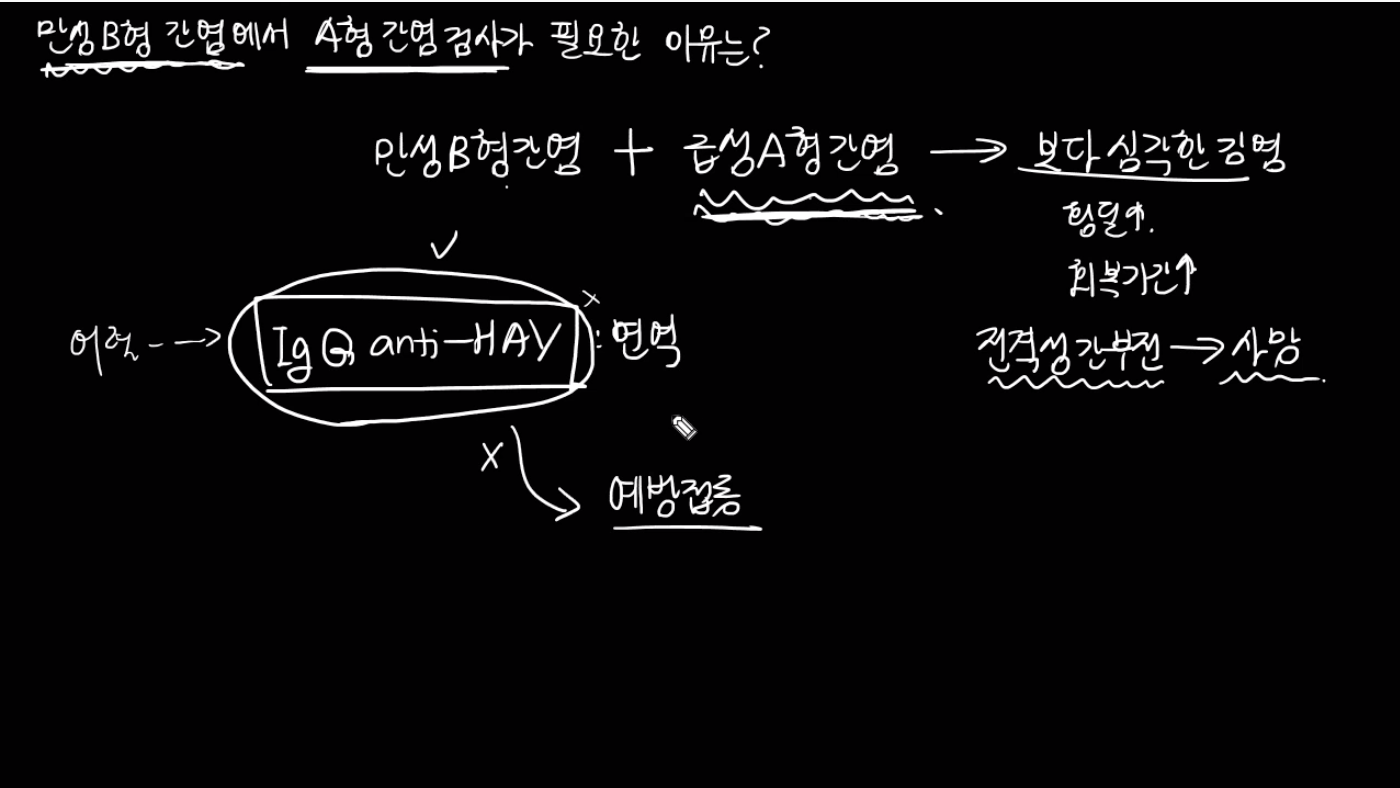 만성 B형 간염에서 A형 간염 검사가 필요한 이유는?
만성 B형 간염 + 급성 A형 간염 → 보다 심각한 감염
황달↑.
회복기간↑
전격성 간부전 → 사망
✓
IgG anti-HAV : 면역
x
X
예방접종